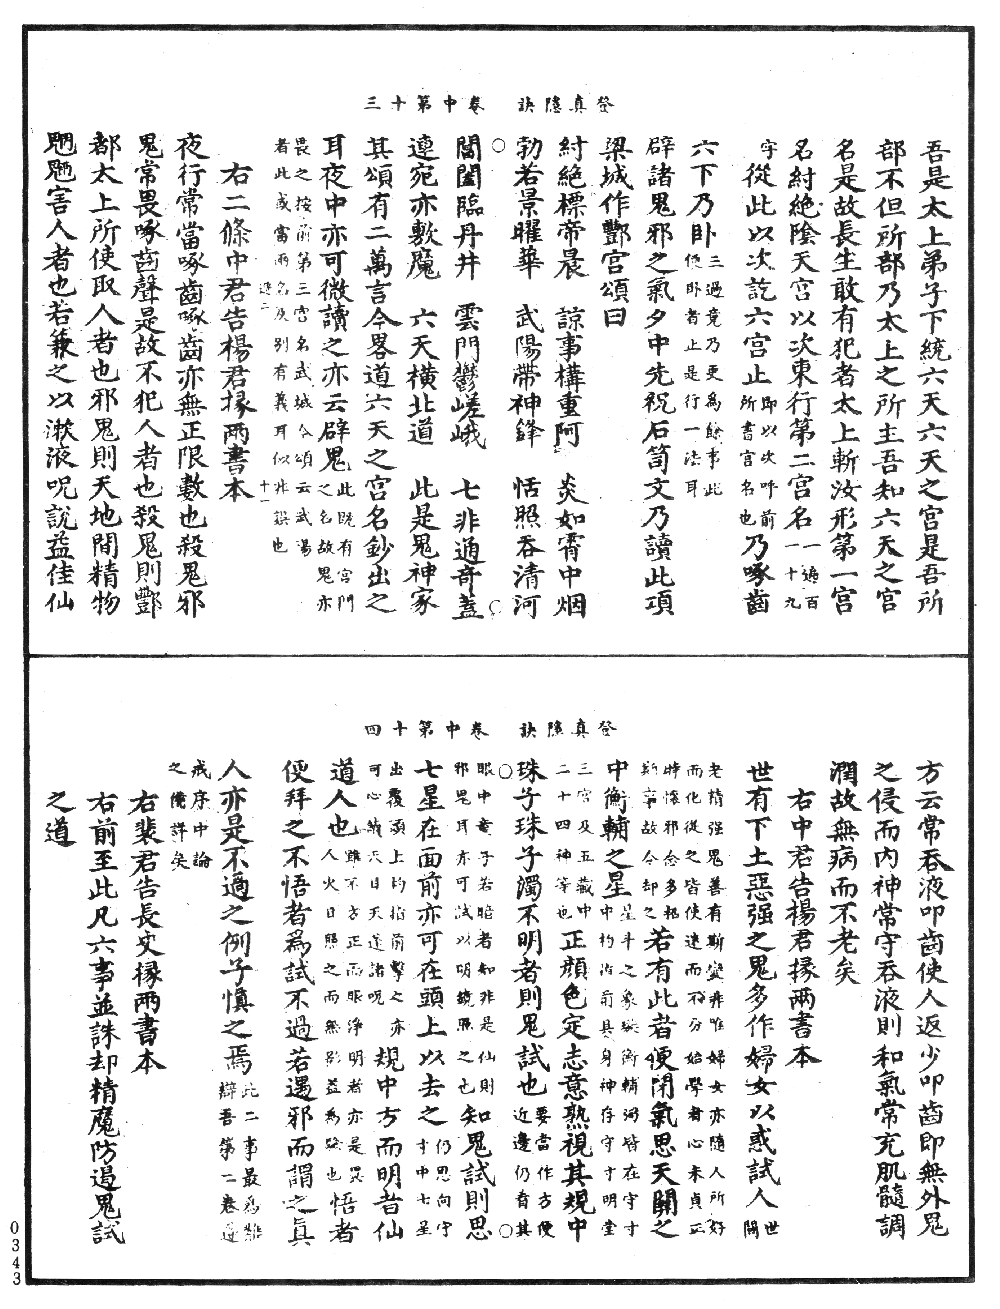 登真隱訣　卷中第十三
吾是太上弟子下統六天六天之宮是吾所
部不但所部乃太上之所主吾知六天之宮
名是故長生敢有犯者太上斬汝形第一宮
名紂絕陰天宮以次東行第二宮名一一過百一十九
字從此以次訖六宮止即以次呼前所書宮名也乃啄齒
六下乃卧三過竟乃更為餘事此便卧者止是行一法耳
辟諸鬼邪之氣夕中先祝石笥文乃讀此項
梁城作酆宮頌曰
紂絕標帝晨　諒事構重阿　炎如霄中烟
勃若景曜華　武陽帶神鋒　恬照吞清河
閶闔臨丹井　雲門鬱嵯峨　七非通奇蓋
連宛亦敷魔　六天橫北道　此是鬼神家
其頌有二萬言今畧道六天之宮名鈔出之
耳夜中亦可微讀之亦云辟鬼此既有宮門之名故鬼亦
畏之按前第三宮名武城今頌云武陽
者此或當兩名及別有義耳似非誤也
右二條中君告楊君掾兩書本
夜行常當啄齒啄齒亦無正限數也殺鬼邪
鬼常畏啄齒聲是故不犯人者也殺鬼則酆
都太上所使取人者也邪鬼則天地間精物
魍魎害人者也若兼之以漱液呪說益佳仙
登真隱訣　卷中第十四
方云常吞液叩齒使人返少叩齒即無外鬼
之侵而內神常守吞液則和氣常充肌髓調
潤故無病而不老矣
右中君告楊君掾兩書本
世有下土惡强之鬼多作婦女以惑試人世間
老精强鬼善有斯變非唯婦女亦隨人所好
而化從之皆使迷而不分始學者心未貞正
時懷邪念多招斯事故令却之若有此者便閉氣思天關之
中衡輔之星星斗之象璇衡輔弼皆在守寸
三宮及五藏中中杓指前具身神存守寸明堂
二十四神等也正顔色定志意熟視其規中
珠子珠子濁不明者則鬼試也要當作方便近邊仍看其
眼中童子若暗者知非是仙則
邪鬼耳亦可試以明鏡照之也知鬼試則思
七星在面前亦可在頭上以去之仍思向守寸中七星
出覆頭上杓指前擊之亦
可心讀天目天蓬諸呪規中方而明者仙
道人也雖不方正而眼淨明者亦是異人火日照之而無影益為驗也悟者
便拜之不悟者為試不過若遇邪而謂之真
人亦是不過之例子慎之焉此二事最為難辯吾第二卷遊
戒序中論之備詳矣
右裴君告長史掾兩書本
右前至此凡六事並誅却精魔防遏鬼試
之道
0343